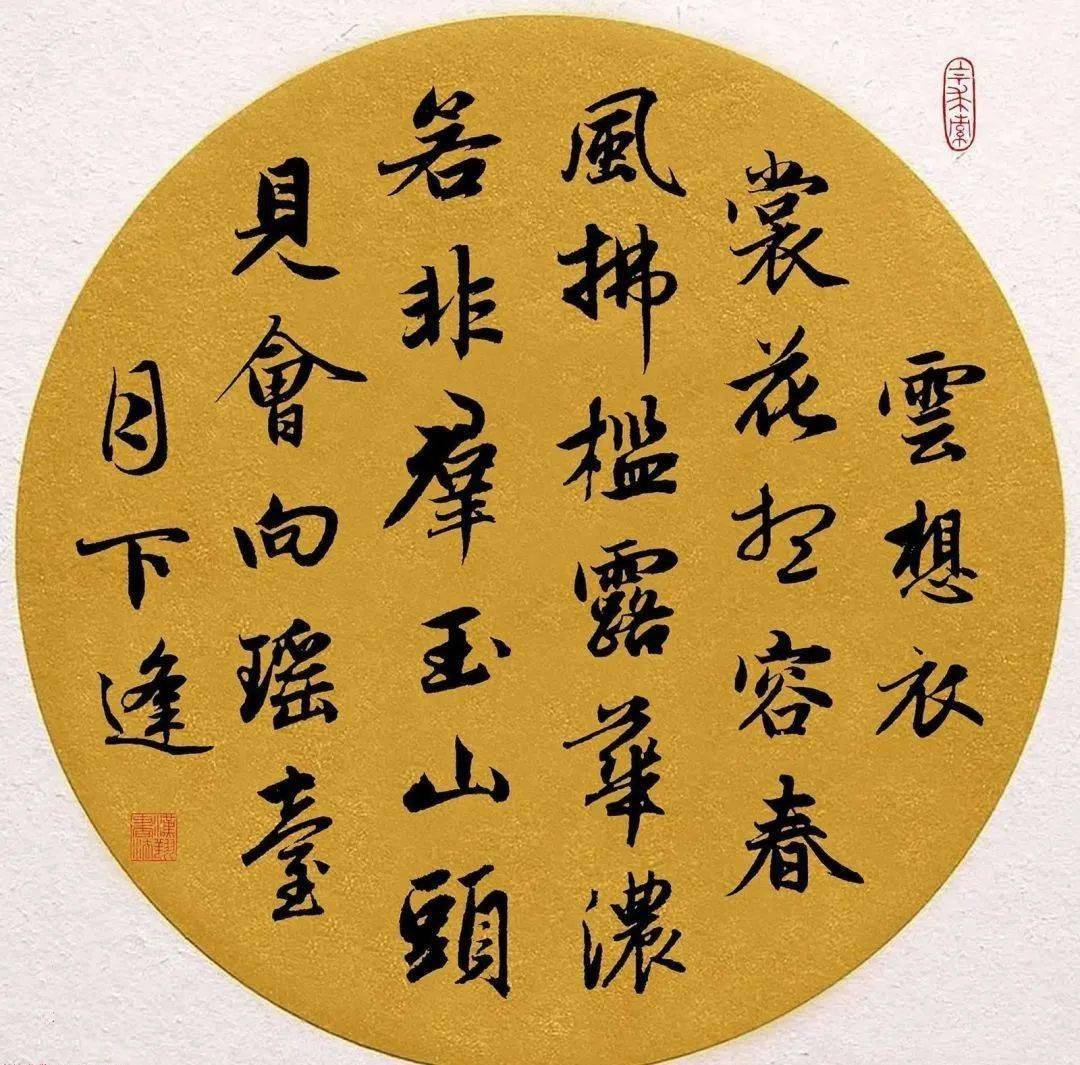 雲想衣
裳花想容春
風拂檻露華濃
若非羣玉山頭
見會向瑶臺
月下逢
漢翔
書法